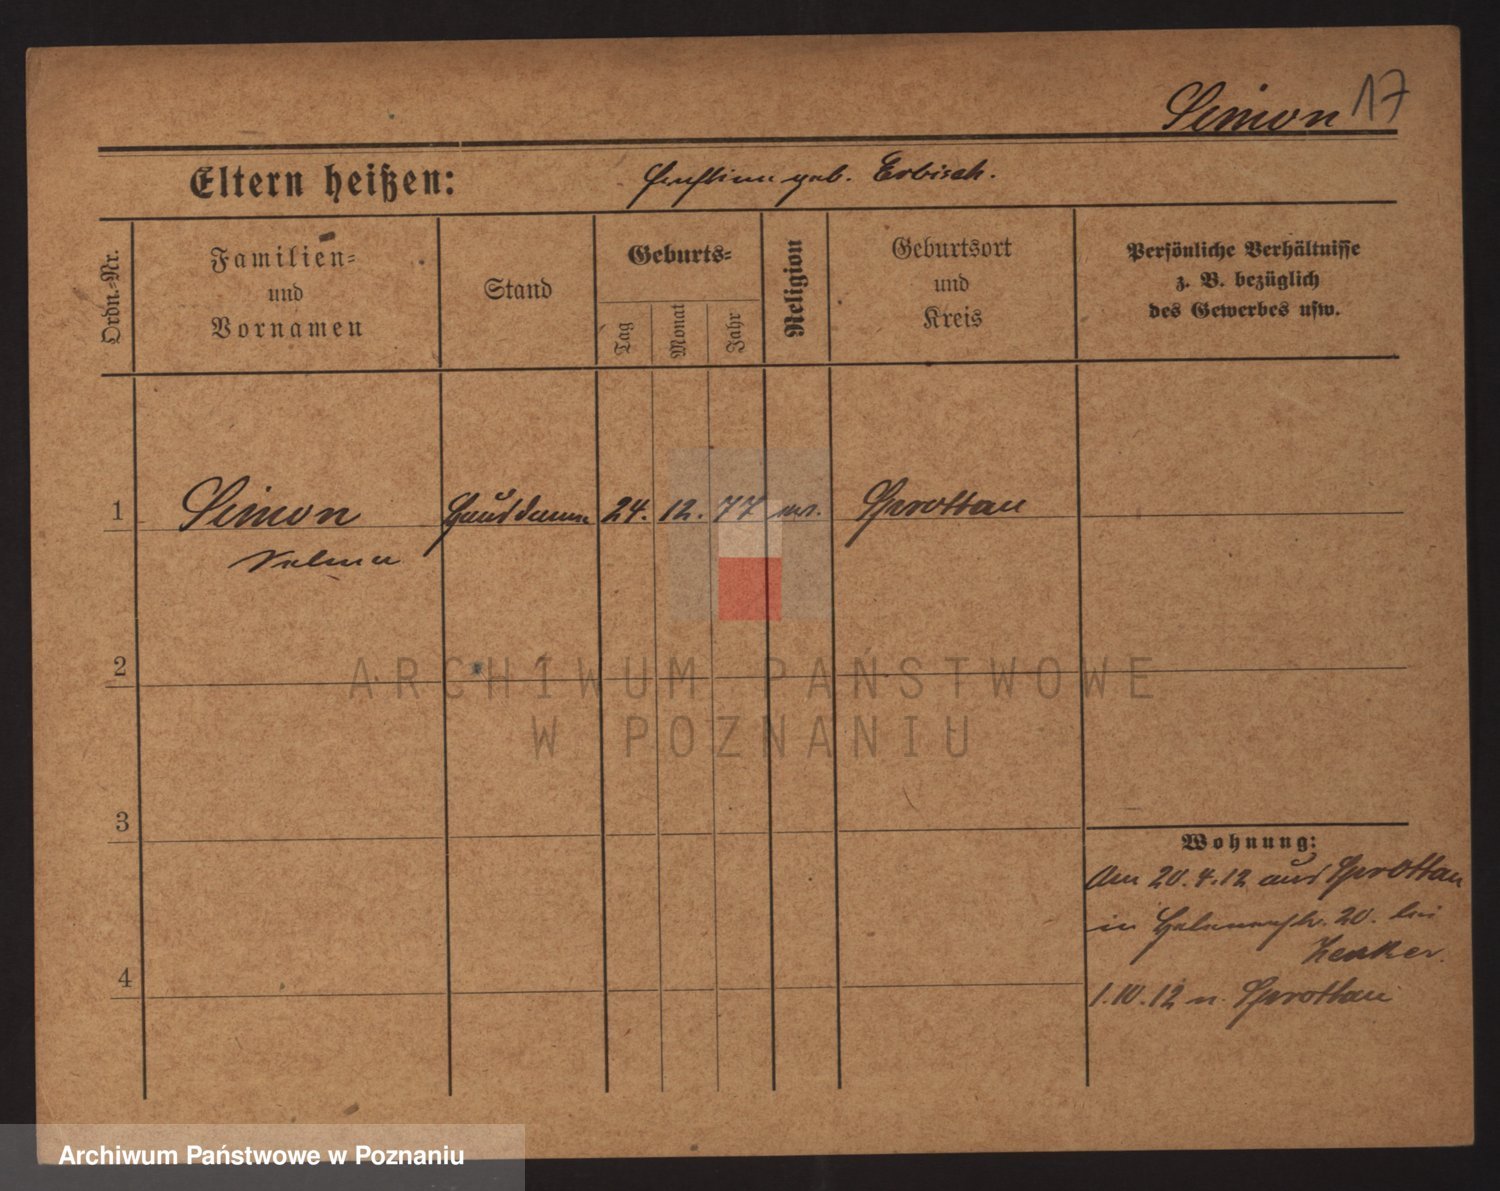 Simon 17
Eltern heißen: geb. Erbisch.
Ordn.-Nr.
Familien-
und
Vornamen
Stand
Geburts-
Tag
Monat
Jahr
Religion
Geburtsort
und
Kreis
Persönliche Verhältnisse
z. B. bezüglich
des Gewerbes usw.
1 Simon Hausdame 24. 12. 77 Sprottau
Selma
2
ARCHIWUM PAŃSTWOWE
W POZNANIU
3
Wohnung:
Am 20.4.12 aus Sprottau
in 20. bei
Zenker.
4
1.10.12 n. Sprottau
Archiwum Państwowe w Poznaniu